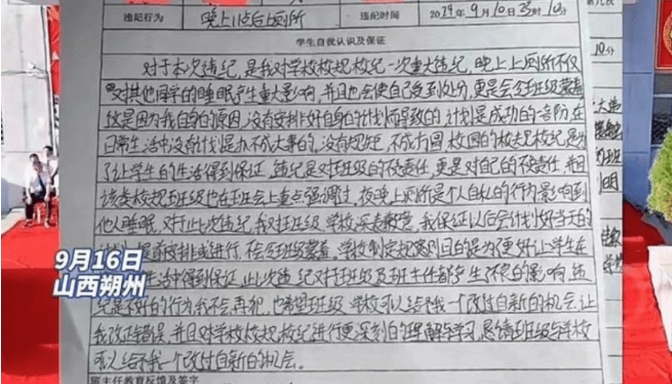 违纪行为 晚上11点后上厕所 违纪时间 2024年9月10日23时10分
学生自我认识及保证
对于本次违纪,是我对学校校规校纪一次重大违纪,晚上上厕所不仅
对其他同学的睡眠产生重大影响,并且也会使自己受到处分,更是会令班级蒙羞
这是因为我自身的原因,没有安排好自身的计划而导致的计划是成功的音防在
日常生活中没有计划是办不成大事的,没有规矩,不成方圆校园的校规校纪是为
了让学生的生活得到保证,违纪是对班级的不责任,更是对自己的不责任,并且
该条校规班级也在班会上重点强调过,夜晚上厕所是个人自私的行为影响到
他人睡眠,对于此次违纪,我对班级,学校深表歉意,我保证以后会计划好当天的
按排或进行,在令班级蒙羞,学校制定规则目的是为了更好让学生在
生活中得到保证,此次违纪对班级及班主任都产生不良的影响,违
纪是不好的行为我不会再犯,也希望班级,学校可以给我一个改过自新的机会,让
我改正错误,并且对学校校规校纪进行更深刻的理解与学习,恳请班级与学校
可以给我一个改过自新的机会.
班主任教育反馈及签字
10分
9月16日
山西朔州